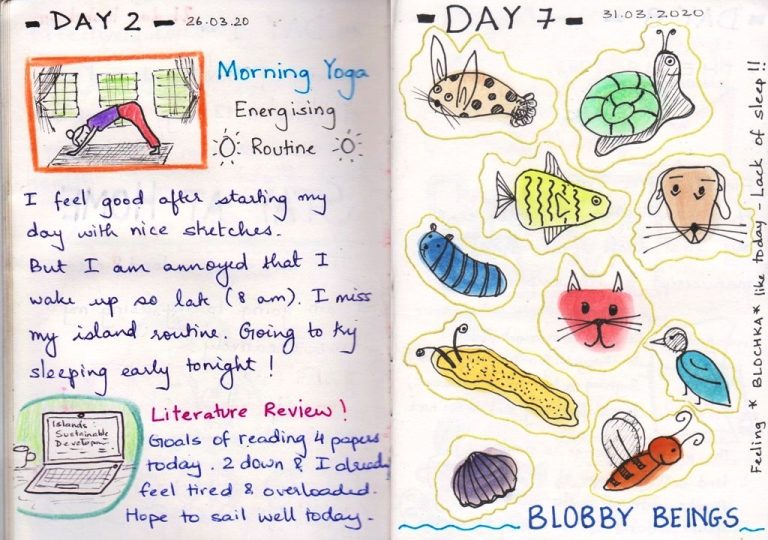 - DAY 2 - 26.03.20
Morning Yoga
Energising
Routine
I feel good after starting my
day with nice sketches.
But I am annoyed that I
wake up so late (8 am). I miss
my island routine. Going to try
sleeping early tonight!
Literature Review!
Islands:
Sustainable
Developm
Goals of reading 4 papers
today. 2 down & I already
feel tired & overloaded.
Hope to sail well today.
- DAY 7 - 31.03.2020
Feeling * BLOCHKA * like today - Lack of sleep!!
BLOBBY BEINGS